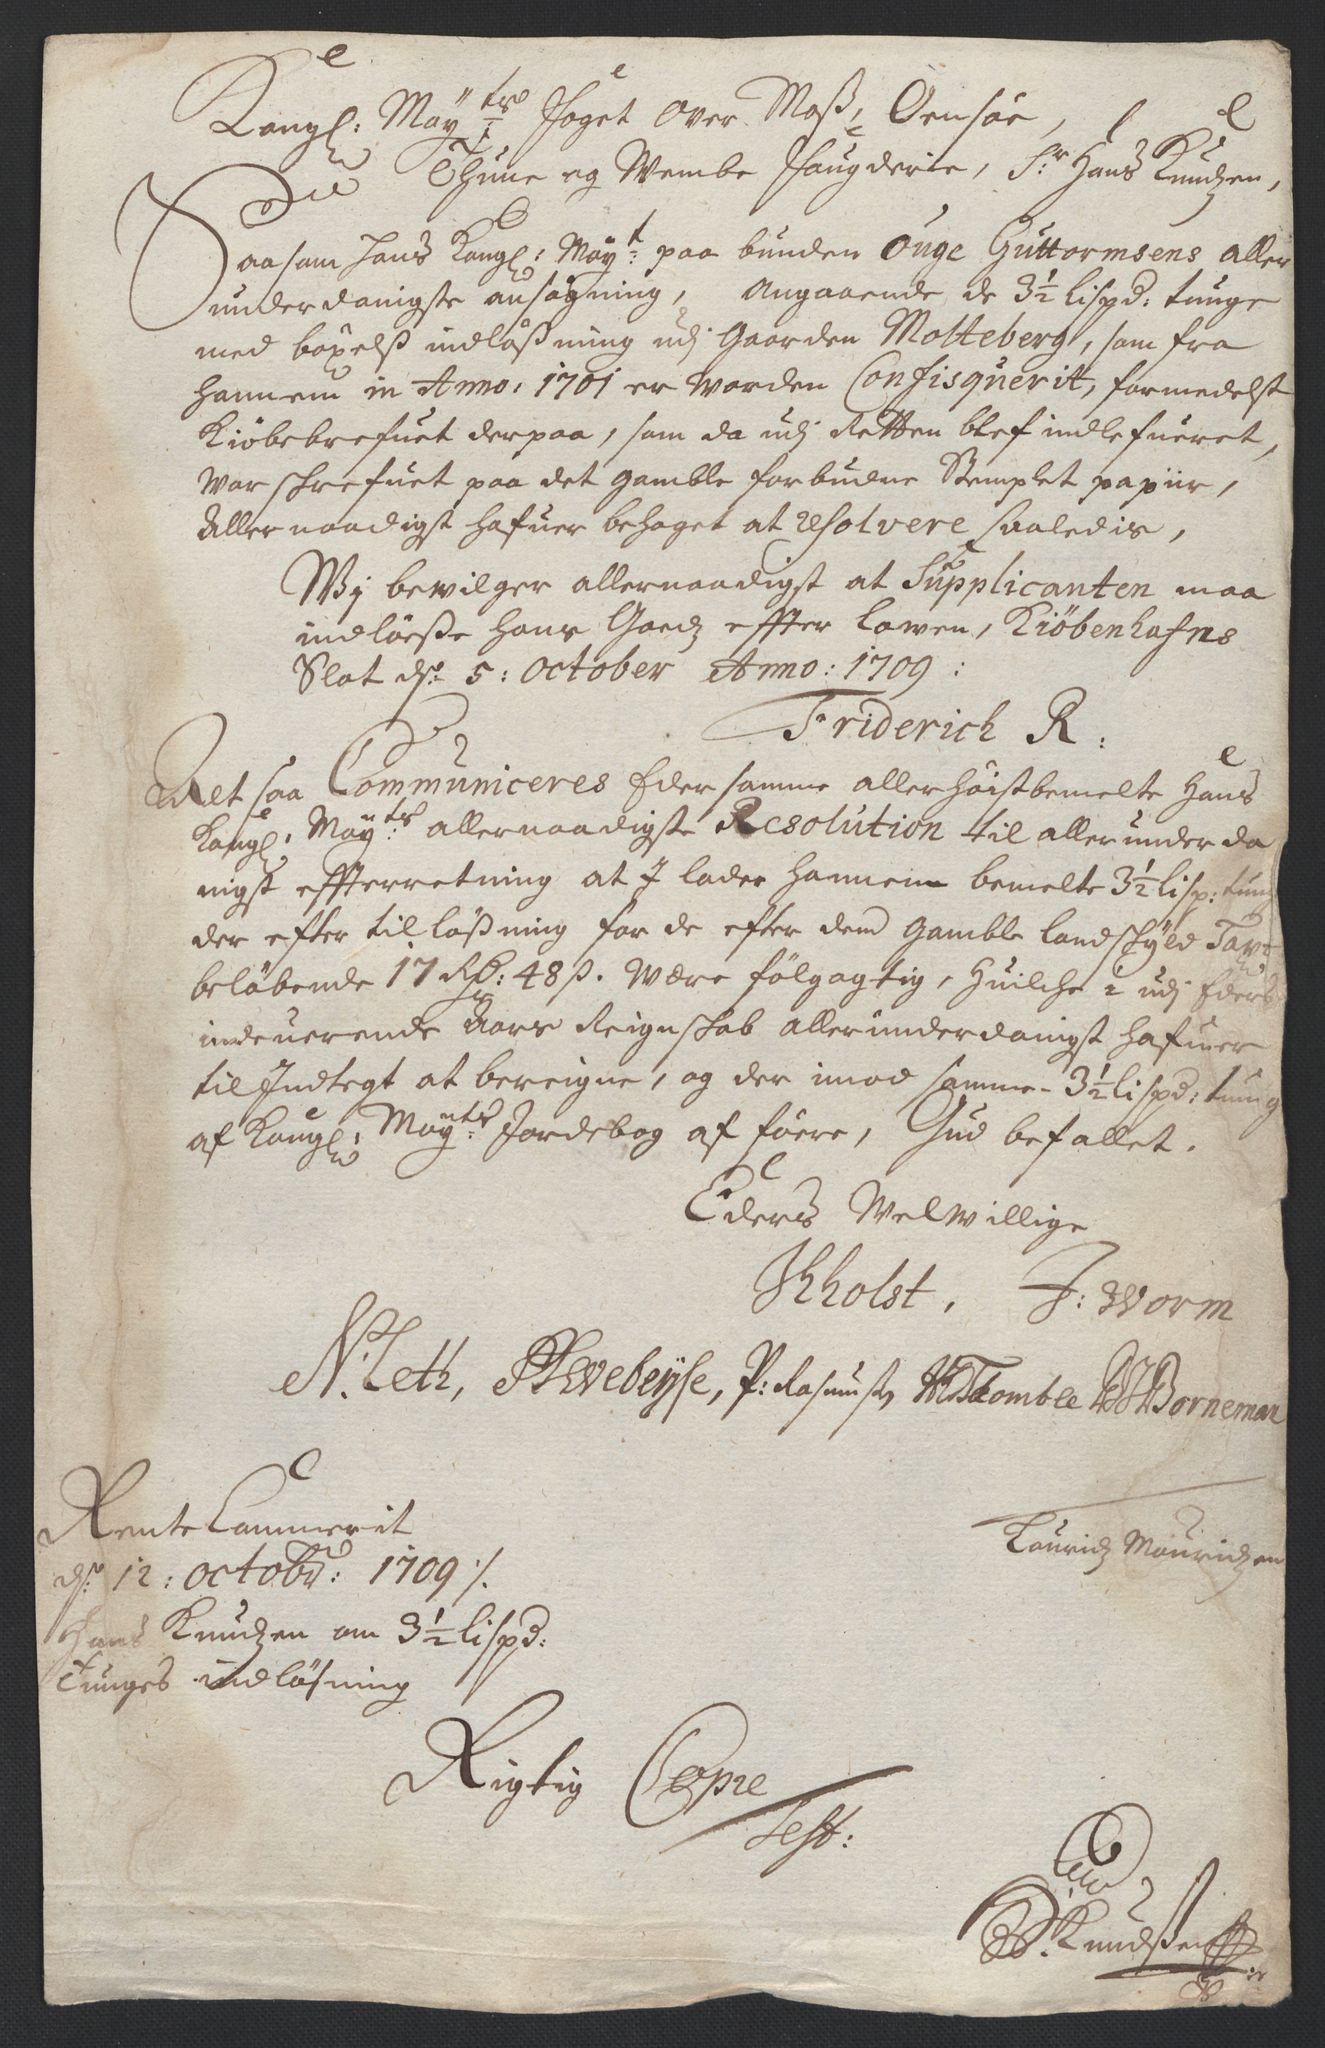 Kongl: Mayts foget over Moss, Onsøe,
Thune og Wembe fougderie, Sr Hans Knudzen,
Saasom Hans Kongl: Mayt: paa bunden Ouge Guttormsens aller
underdanigste ansøgning, Angaaende de 3½ Lispd: tunge
med böxelß indlößning udj Gaarden Molteberg, som fra
hannem in Anno: 1701 er worden Confisquerit, formedelst
Kiöbebrefuet derpaa, som da udj Retten blef indlefueret,
war schrefuet paa det gamble forbudne Stemplet papiir,
Allernaadigst hafuer behaget at resolvere saaledis,
Wj bewilger allernaadigst at Supplicanten maa
indlöesse hans Goedz effter Lowen, Kiöbenhafns
Slot ds: 5: October Anno: 1709:
Friderich R:
Altsaa Communiceres Eder samme allerhöistbemelte Hans
Kongl: Mayts: allernaadigste Resolution til allerunderda
nigst effterretning at I lader hannem bemelte 3½ Lisp: tung
der efter tillößning for de efter dend gamble Landschyld Taxt
belöbende 17 Rdr: 48 ß. Være fölgagtig, Huilche i udj Eders
indeverende Aars Reignschab allerunderdanigst hafuer
til Indtegt at bereigne, og der imod samme 3½ Lispd: tung
af Kongl: Mayts: Jordebog af föere, Gud befallet.
Eders Velwillige
Ihholst, J: Worm
N. Leth, Webeyse, P: Rasmuss, Tkomble Borneman
Lauridz Mouridzen
Rente Cammerit
ds: 12: octobr: 1709 ./.
Hans Knudzen om 3½ Lispd:
Tunges indlösning
Rigtig Copie
Test:
Knudssen